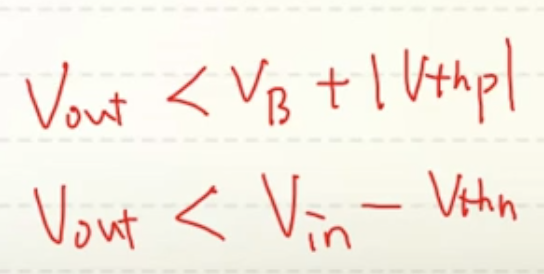 Vout < VB + |Vthp|
Vout < Vin - Vthn